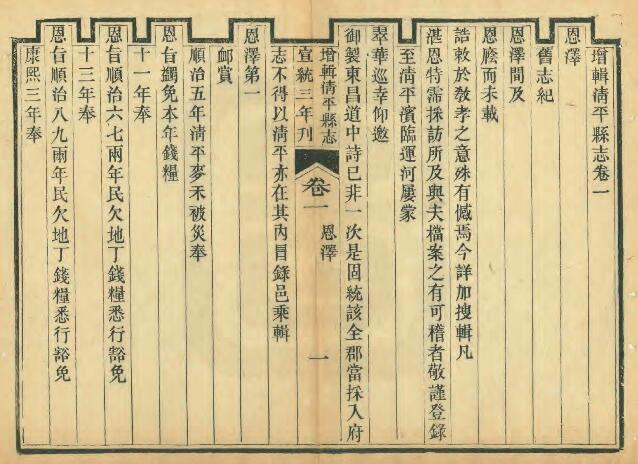 增輯清平縣志卷一
恩澤
舊志紀
恩澤間及
恩賸而未載
誥敕於教孝之意殊有憾焉今詳加搜輯凡
湛恩特霈採訪所及與夫檔案之有可稽者敬謹登錄
至清平濱臨運河屢蒙
翠華巡幸仰邀
御製東昌道中詩已非一次是固統該全郡當採入府
增輯清平縣志
宣統三年刊
卷一
恩澤
一
志不得以清平亦在其內冒錄邑乘輯
恩澤第一
卹賞
順治五年清平麥禾被災奉
恩旨蠲免本年錢糧
十一年奉
恩旨順治六七兩年民欠地丁錢糧悉行豁免
十三年奉
恩旨順治八九兩年民欠地丁錢糧悉行豁免
康熙三年奉